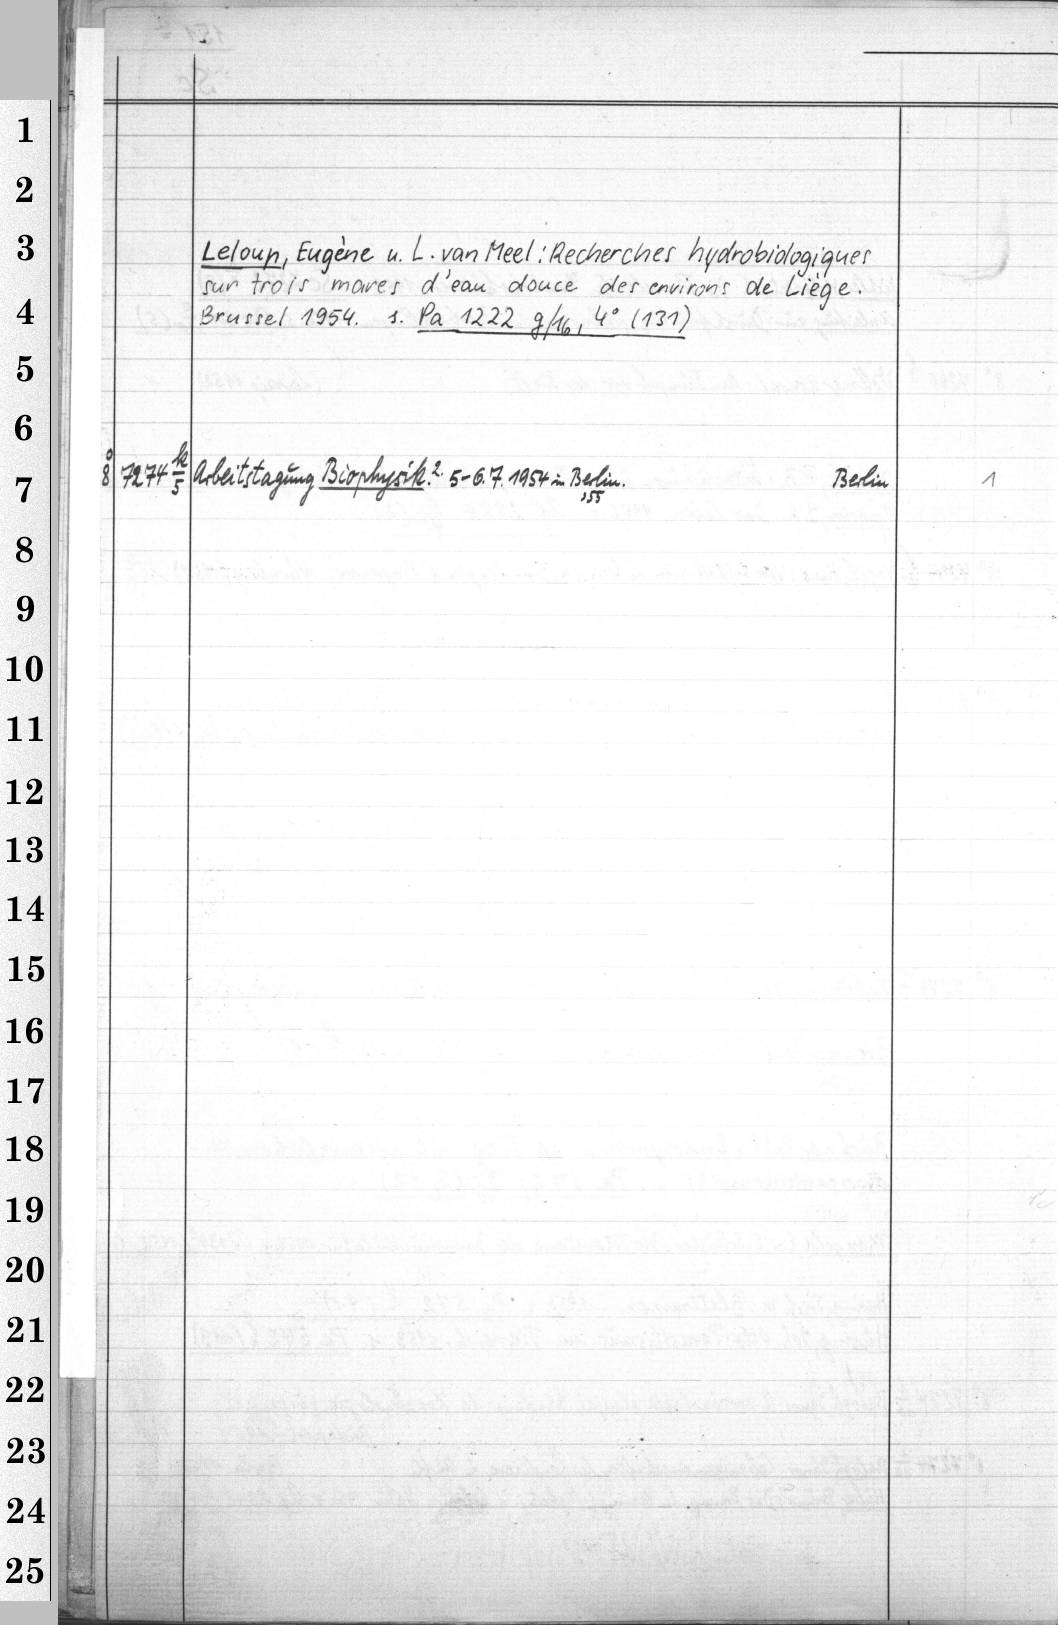 1
2
3
Leloup, Eugène u. L. van Meel: Recherches hydrobiologiques
sur trois mares d'eau douce des environs de Liège.
4
Brussel 1954. s. Pa 1222 g/16, 4° (131)
5
6
7
8° 7274 k/5 Arbeitstagŭng Biophysik. 2. 5-6.7.1954 in Berlin. Berlin 1
,55
8
9
10
11
12
13
14
15
16
17
18
19
20
21
22
23
24
25